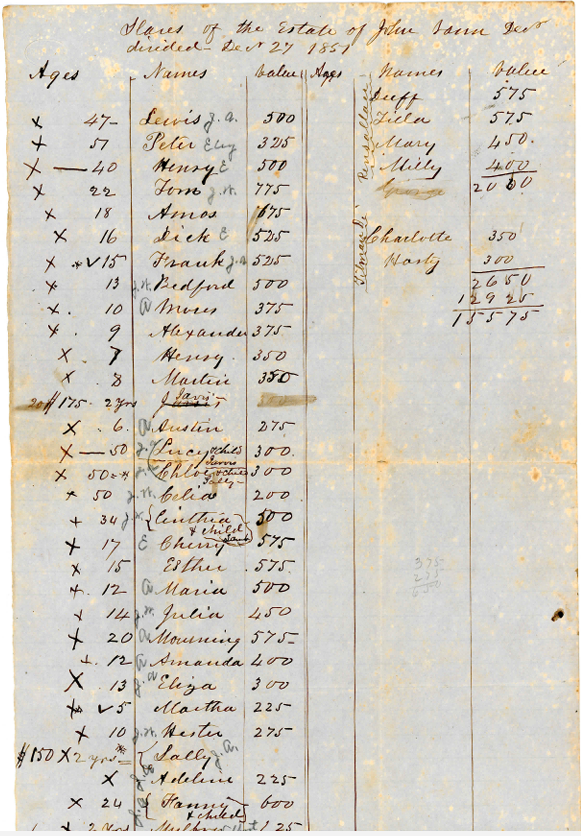 Slaves of the Estate of John Vann Decd
divided Dec 27 1851
Ages Names Value Ages Names Value
X 47 Lewis J.A. 500
X 57 Peter Eliz 325
X 40 Henry E 500
X 22 Tom J.W. 775
X 18 Amos 675
X 16 Dick E 525
X ✓15 Frank 525
X 13 J.W. Bedford 500
X 10 A Moses 375
X 9 Alexander 375
X 7 Henry 350
X 8 Martin 350
$175 2 yrs Jarvis
X 6 A Austin 275
X 50 Lucy & child Jarvis 300
X 50 Chloe & child Sally 300
X 50 J.W. Celia 200
X 34 Cinthia & child 500
X 17 E Cherry 575
X 15 Esther 575
X 12 A Maria 500
X 14 J.W. Julia 450
X 20 A Mourning 575
X 12 A Amanda 400
X 13 Eliza 300
X ✓5 Martha 225
X 10 J.W. Hester 275
$150 X 2 yrs Sally J.A.
X Adeline 225
X 24 Fanny & child 600
X 2 yrs 125
Pensallana
575
Zilla 575
Mary 450
Milly 400
George 2000
Charlotte 350
Hasty 300
2650
12925
15575
375
275
650